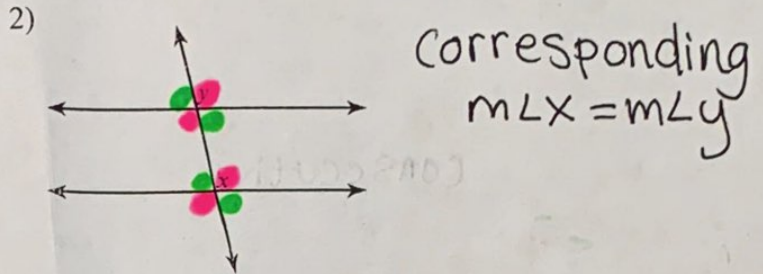 2)
corresponding
m∠x = m∠y
y
x